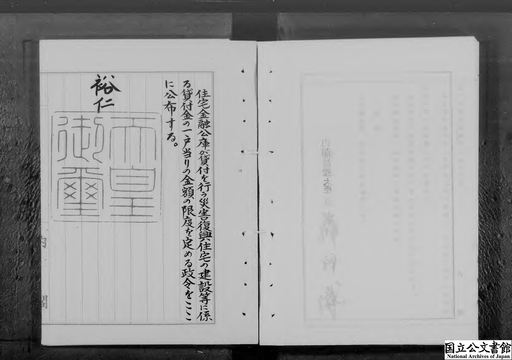 住宅金融公庫が貸付を行う災害復興住宅の建設等に係
る貸付金の一戸当りの金額の限度を定める政令をここ
に公布する。
裕仁
天皇
御璽
国立公文書館
National Archives of Japan